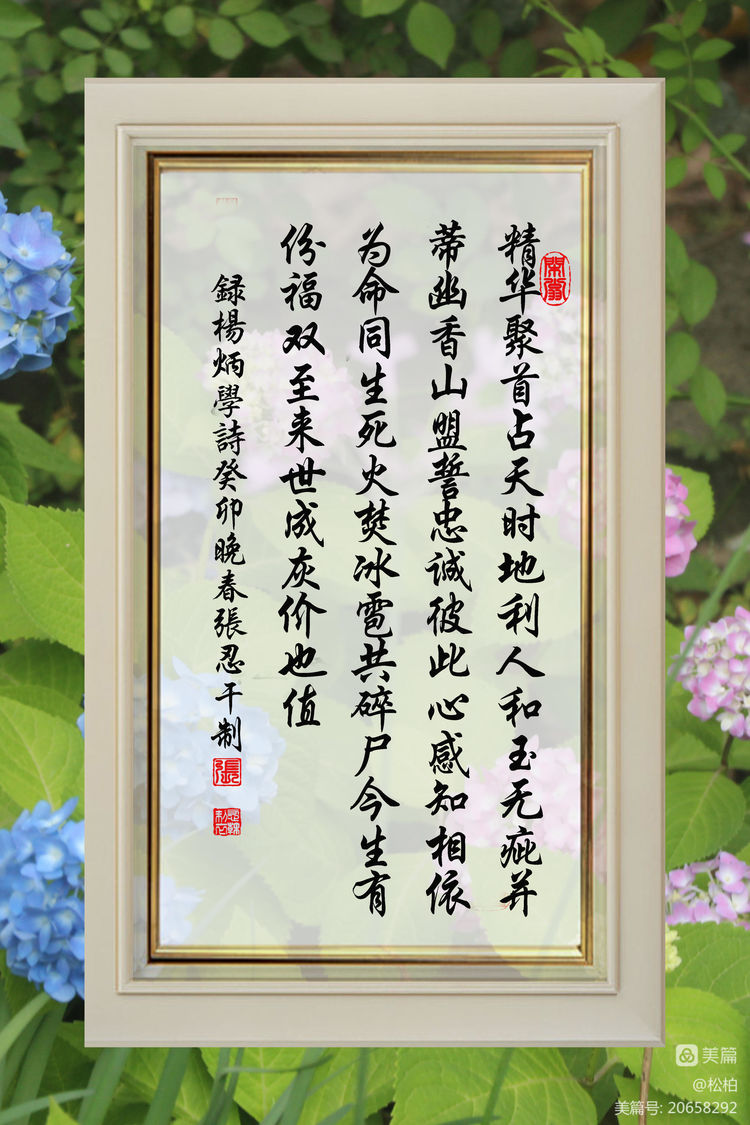 精华聚首占天时地利人和玉无疵并
蒂幽香山盟誓忠诚彼此心感知相依
为命同生死火焚冰雹共碎尸今生有
份福双至来世成灰价也值
録楊炳學詩癸卯晚春張忍干制
張
美篇
@松柏
美篇号: 20658292